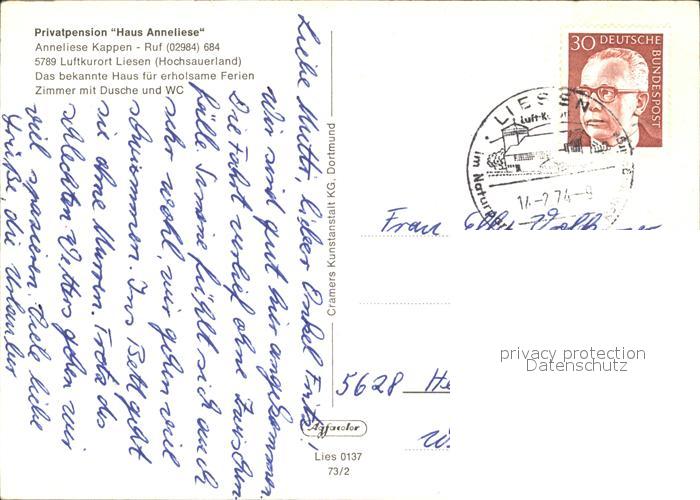 Privatpension "Haus Anneliese"
Anneliese Kappen - Ruf (02984) 684
5789 Luftkurort Liesen (Hochsauerland)
Das bekannte Haus für erholsame Ferien
Zimmer mit Dusche und WC
Liebe Mutti, lieber Onkel Fritz,
Wir sind gut hier angekommen.
Die Fahrt verlief ohne Zwischen-
fälle. Simone fühlt sich auch
sehr wohl, wir gehen viel
schwimmen. Ins Bett geht
sie ohne Murren. Trotz des
schlechten Wetters gehen wir
viel spazieren. Viele liebe
Grüße, die Urlauber
Cramers Kunstanstalt KG, Dortmund
Agfacolor
Lies 0137
73/2
30 DEUTSCHE BUNDESPOST
LIESEN
Luft-K
im Naturp
14-2.74-9
Frau
5628 He
privacy protection
Datenschutz